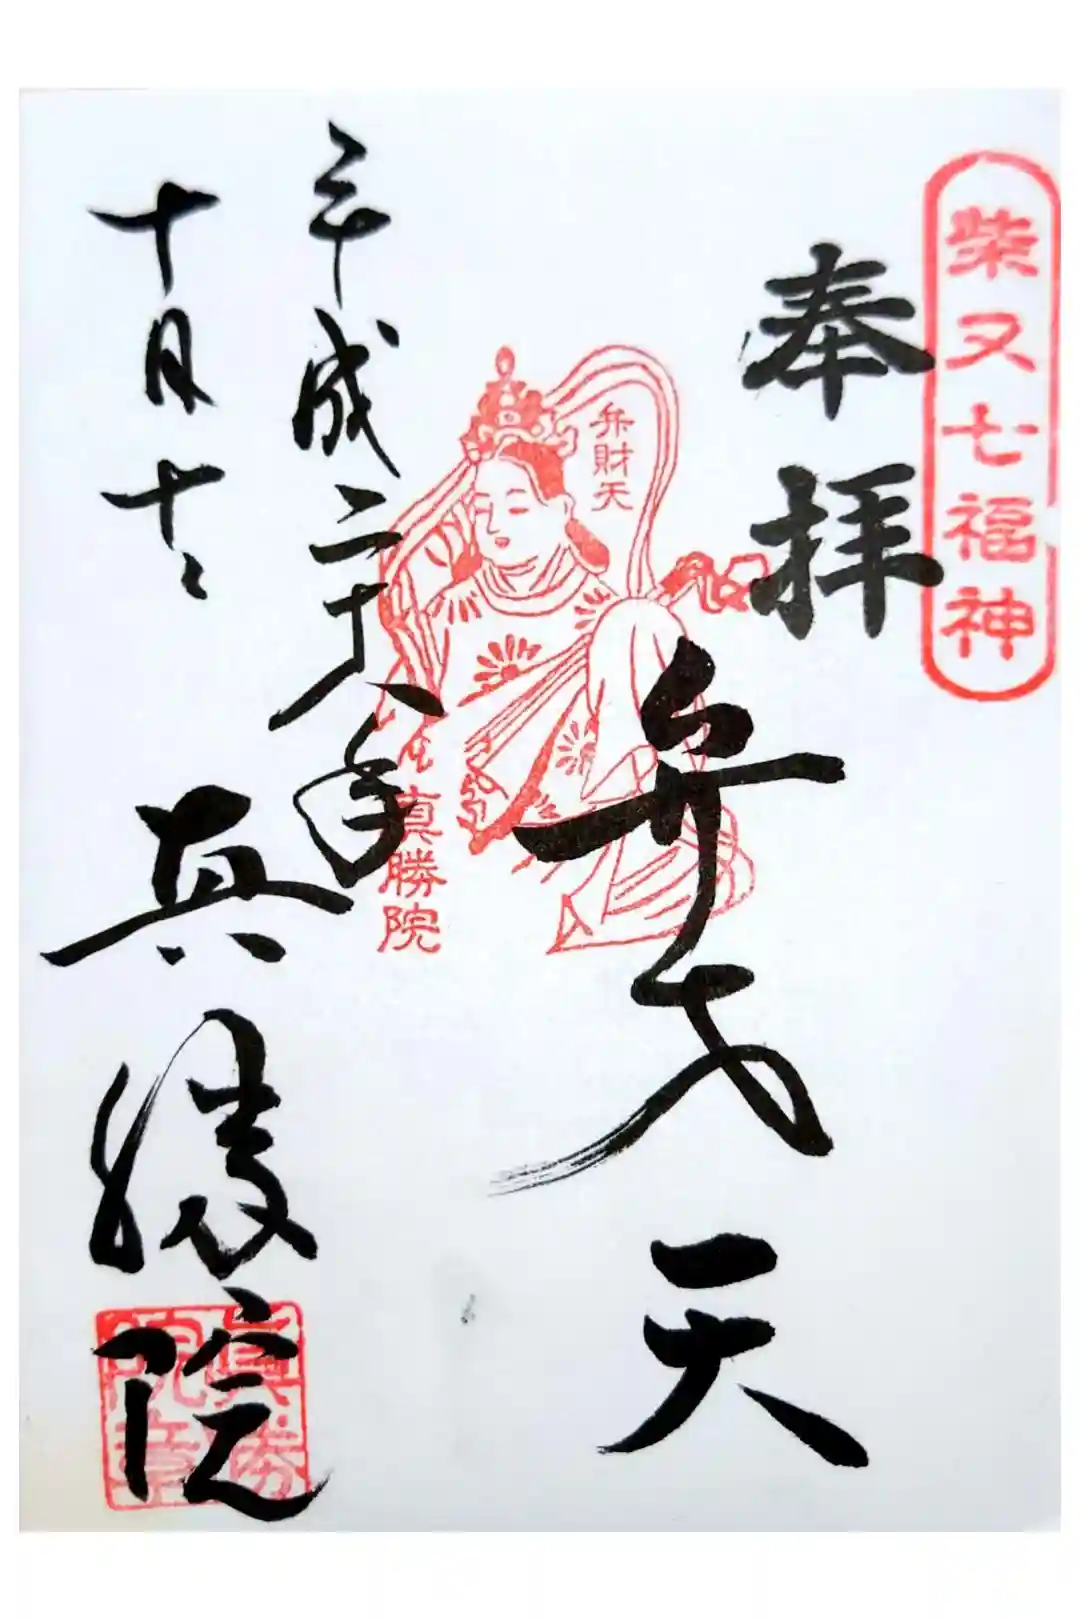 柴又七福神
奉拝
弁才天
弁財天
真勝院
平成二十八年
十月十
真勝院
眞勝
院章